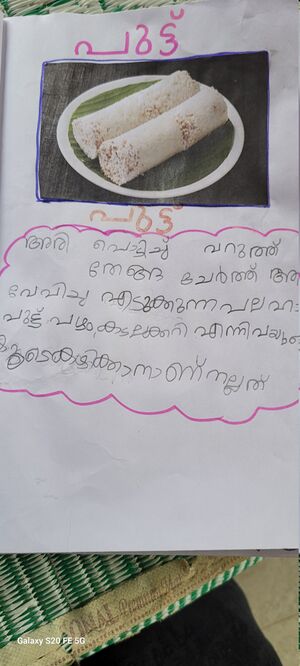 പുട്ട്
പുട്ട്
അരി പൊടിച്ച് വറുത്ത്
തേങ്ങ ചേർത്ത്
വേവിച്ചു എടുക്കുന്ന പലഹാ
പുട്ട് പഴം, കടലക്കറി എന്നിവയു
കൂടെകഴിക്കാനാണ് നല്ലത്
Galaxy S20 FE 5G